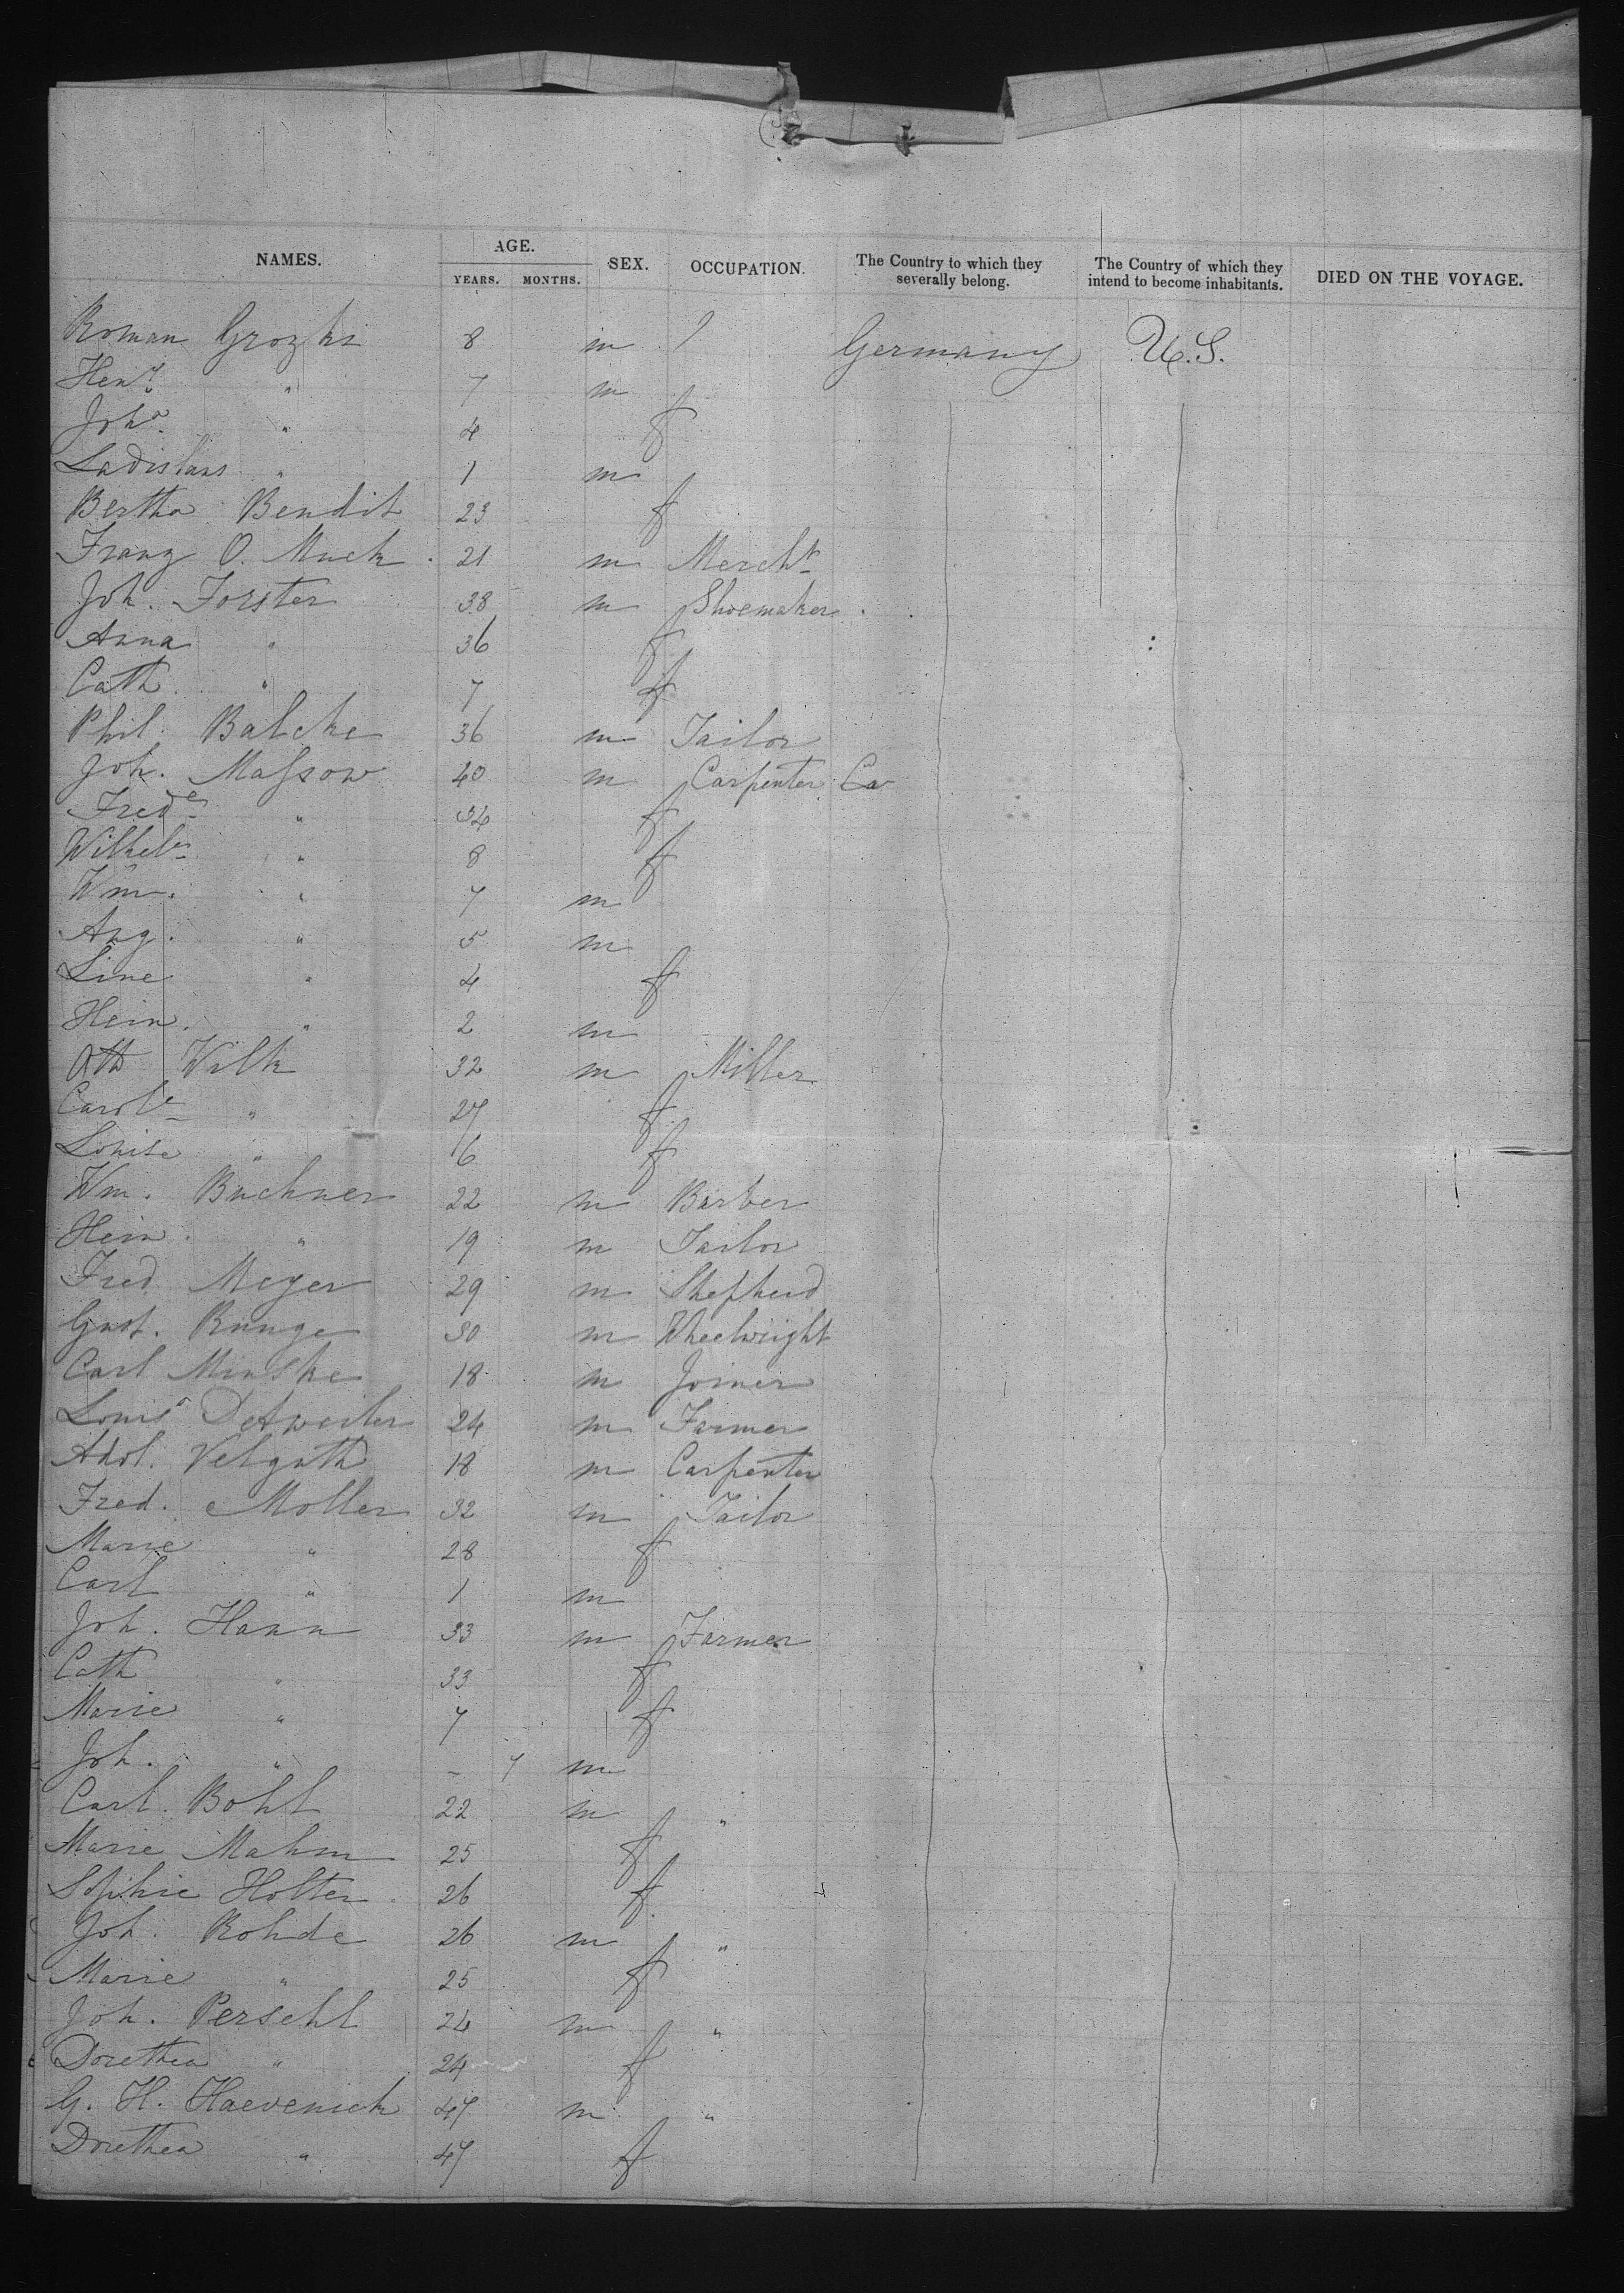 NAMES. AGE. SEX. OCCUPATION. The Country to which they severally belong. The Country of which they intend to become inhabitants. DIED ON THE VOYAGE.
YEARS. MONTHS.
Roman Grozki 8 m Germany U.S.
Henr. " 7 m
Joha. " 4 f
Ladislaus " 1 m
Bertha Bendit 23 f
Franz O. Muck 21 m Mercht
Joh. Forster 38 m Shoemaker
Anna " 36 f
Cath. " 7 f
Phil. Balcke 36 m Tailor
Joh. Massow 40 m Carpenter Ca
Frede " 34 f
Wilhelm " 8 f
Wm. " 7 m
Aug. " 5 m
Line " 4 f
Hein. " 2 m
Otto Wilk 32 m Miller
Carole " 27 f
Louise " 6 f
Wm. Buchner 22 m Barber
Hein. " 19 m Tailor
Fred Meyer 29 m Shepherd
Gust. Runge 30 m Wheelwright
Carl Minske 18 m Joiner
Louis Detweiler 24 m Farmer
Adol. Velguth 18 m Carpenter
Fred. Moller 32 m Tailor
Marie " 28 f
Carl " 1 m
Joh. Hann 33 m Farmer
Cath " 33 f
Marie " 7 f
Joh. " – 7 m
Carl Bohl 22 m "
Marie Mahm 25 f
Sophie Holter 26 f
Joh. Rohde 26 m "
Marie " 25 f
Joh. Perschl 24 m "
Dorethea " 24 f
G. H. Haevenick 47 m "
Dorethea " 47 f